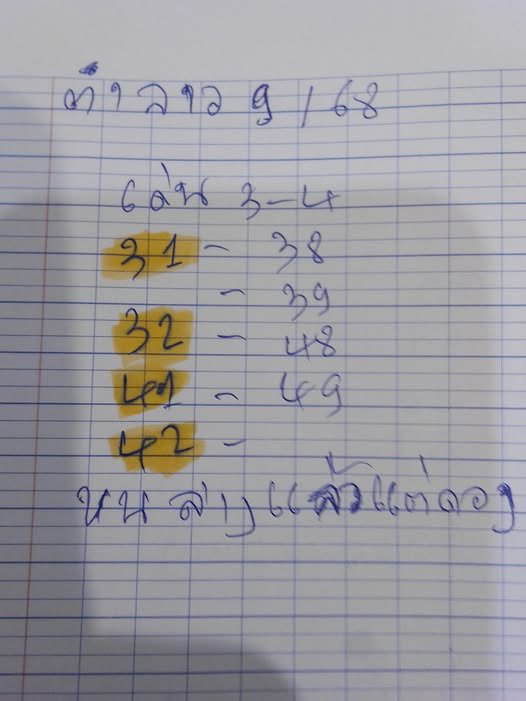 ตำลาว 9/68
เด่น 3-4
31 - 38
- 39
32 - 48
41 - 49
42 -
บน ล่าง แล้วแต่ดวง